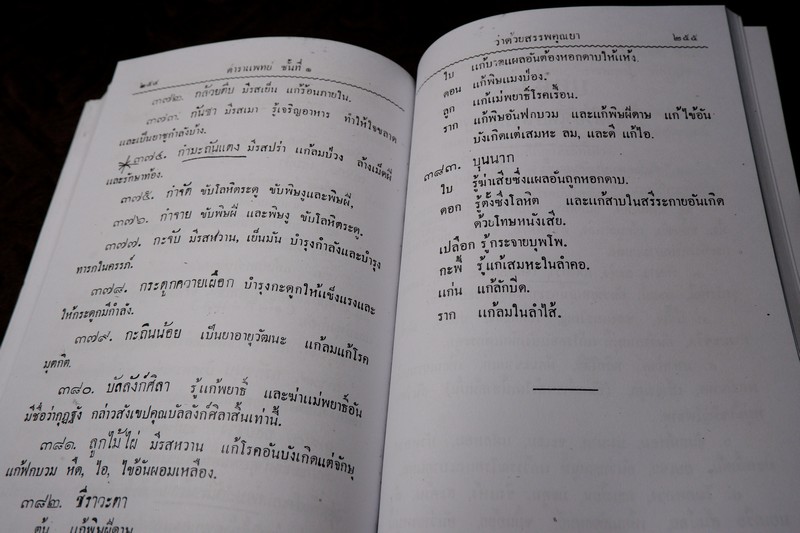 ๒๕๔ ตำราแพทย์ ชั้นที่ ๑
๓๗๒. กล้วยตีบ มีรสเย็น แก้ร้อนภายใน.
๓๗๓. กันชา มีรสเมา รู้เจริญอาหาร ทำให้ใจขลาด
และเป็นยาชูกำลังบ้าง.
๓๗๔. กำมะถันแดง มีรสปร่า แก้ลมป่วง ล้างเม็ดฝี
และรักษาท้อง.
๓๗๕. กำจัด ขับโลหิตระดู ขับพิษงูและพิษฝี.
๓๗๖. กำจาย ขับพิษฝี และพิษงู ขับโลหิตระดู.
๓๗๗. กะจับ มีรสหวาน, เย็นมัน บำรุงกำลังและบำรุง
ทารกในครรภ์.
๓๗๘. กระดูกควายเผือก บำรุงกะดูกให้แข็งแรงและ
ให้กระดูกมีกำลัง.
๓๗๙. กะถินน้อย เป็นยาอายุวัฒนะ แก้ลมแก้โรค
มุตกิต.
๓๘๐. บัลลังก์ศิลา รู้แก้พยาธิ์ และฆ่าแม่พยาธิ์อัน
มีชื่อว่ากุฏฐัง กล่าวสังเขปคุณบัลลังก์ศิลาสิ้นเท่านี้.
๓๘๑. ลูกไม้ไผ่ มีรสหวาน แก้โรคอันบังเกิดแต่จักษุ
แก้ฟกบวม หืด, ไอ, ไข้อันผอมเหลือง.
๓๘๒. ชีราวะตา
ต้น แก้พิษฝีดาษ
ว่าด้วยสรรพคุณยา ๒๕๕
ใบ แก้บาดแผลอันต้องหอกดาบให้แห้ง.
ดอน แก้พิษแมงป่อง.
ลูก แก้แม่พยาธิ์โรคเรื้อน.
ราก แก้พิษอันฟกบวม และแก้พิษฝีดาษ แก้ไข้อัน
บังเกิดแต่เสมหะ ลม, และดี แก้ไอ.
๓๘๓. บุนนาก
ใบ รู้ฆ่าเสียซึ่งแผลอันถูกหอกดาบ.
ดอก รู้ตั้งซึ่งโลหิต และแก้สาบในสรีระกายอันเกิด
ด้วยโทษหนังเสีย.
เปลือก รู้กระจายบุพโพ.
กะพี้ รู้แก้เสมหะในลำคอ.
แก่น แก้ลักปิด.
ราก แก้ลมในลำไส้.